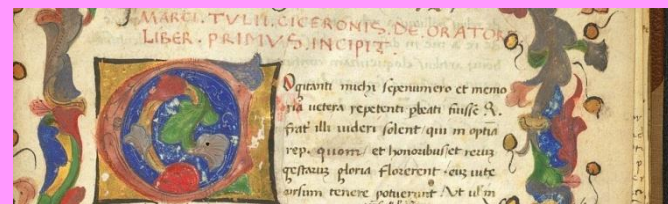 MARCI. TVLII. CICERONIS. DE. ORATOR
LIBER. PRIMVS. INCIPIT.
Ogitanti michi sepenumero et memo
ria uetera repetenti pbeati fuisse Q.
frat̄ illi uideri solent qui in optīa
rep. quom et honoribus et rerūȝ
gestaruȝ gloria florerent. euȝ uite
cursum tenere potuerunt. Ut ul' in